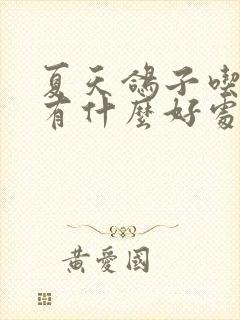 夏天鴿子喫
有什麼好處
黃愛國